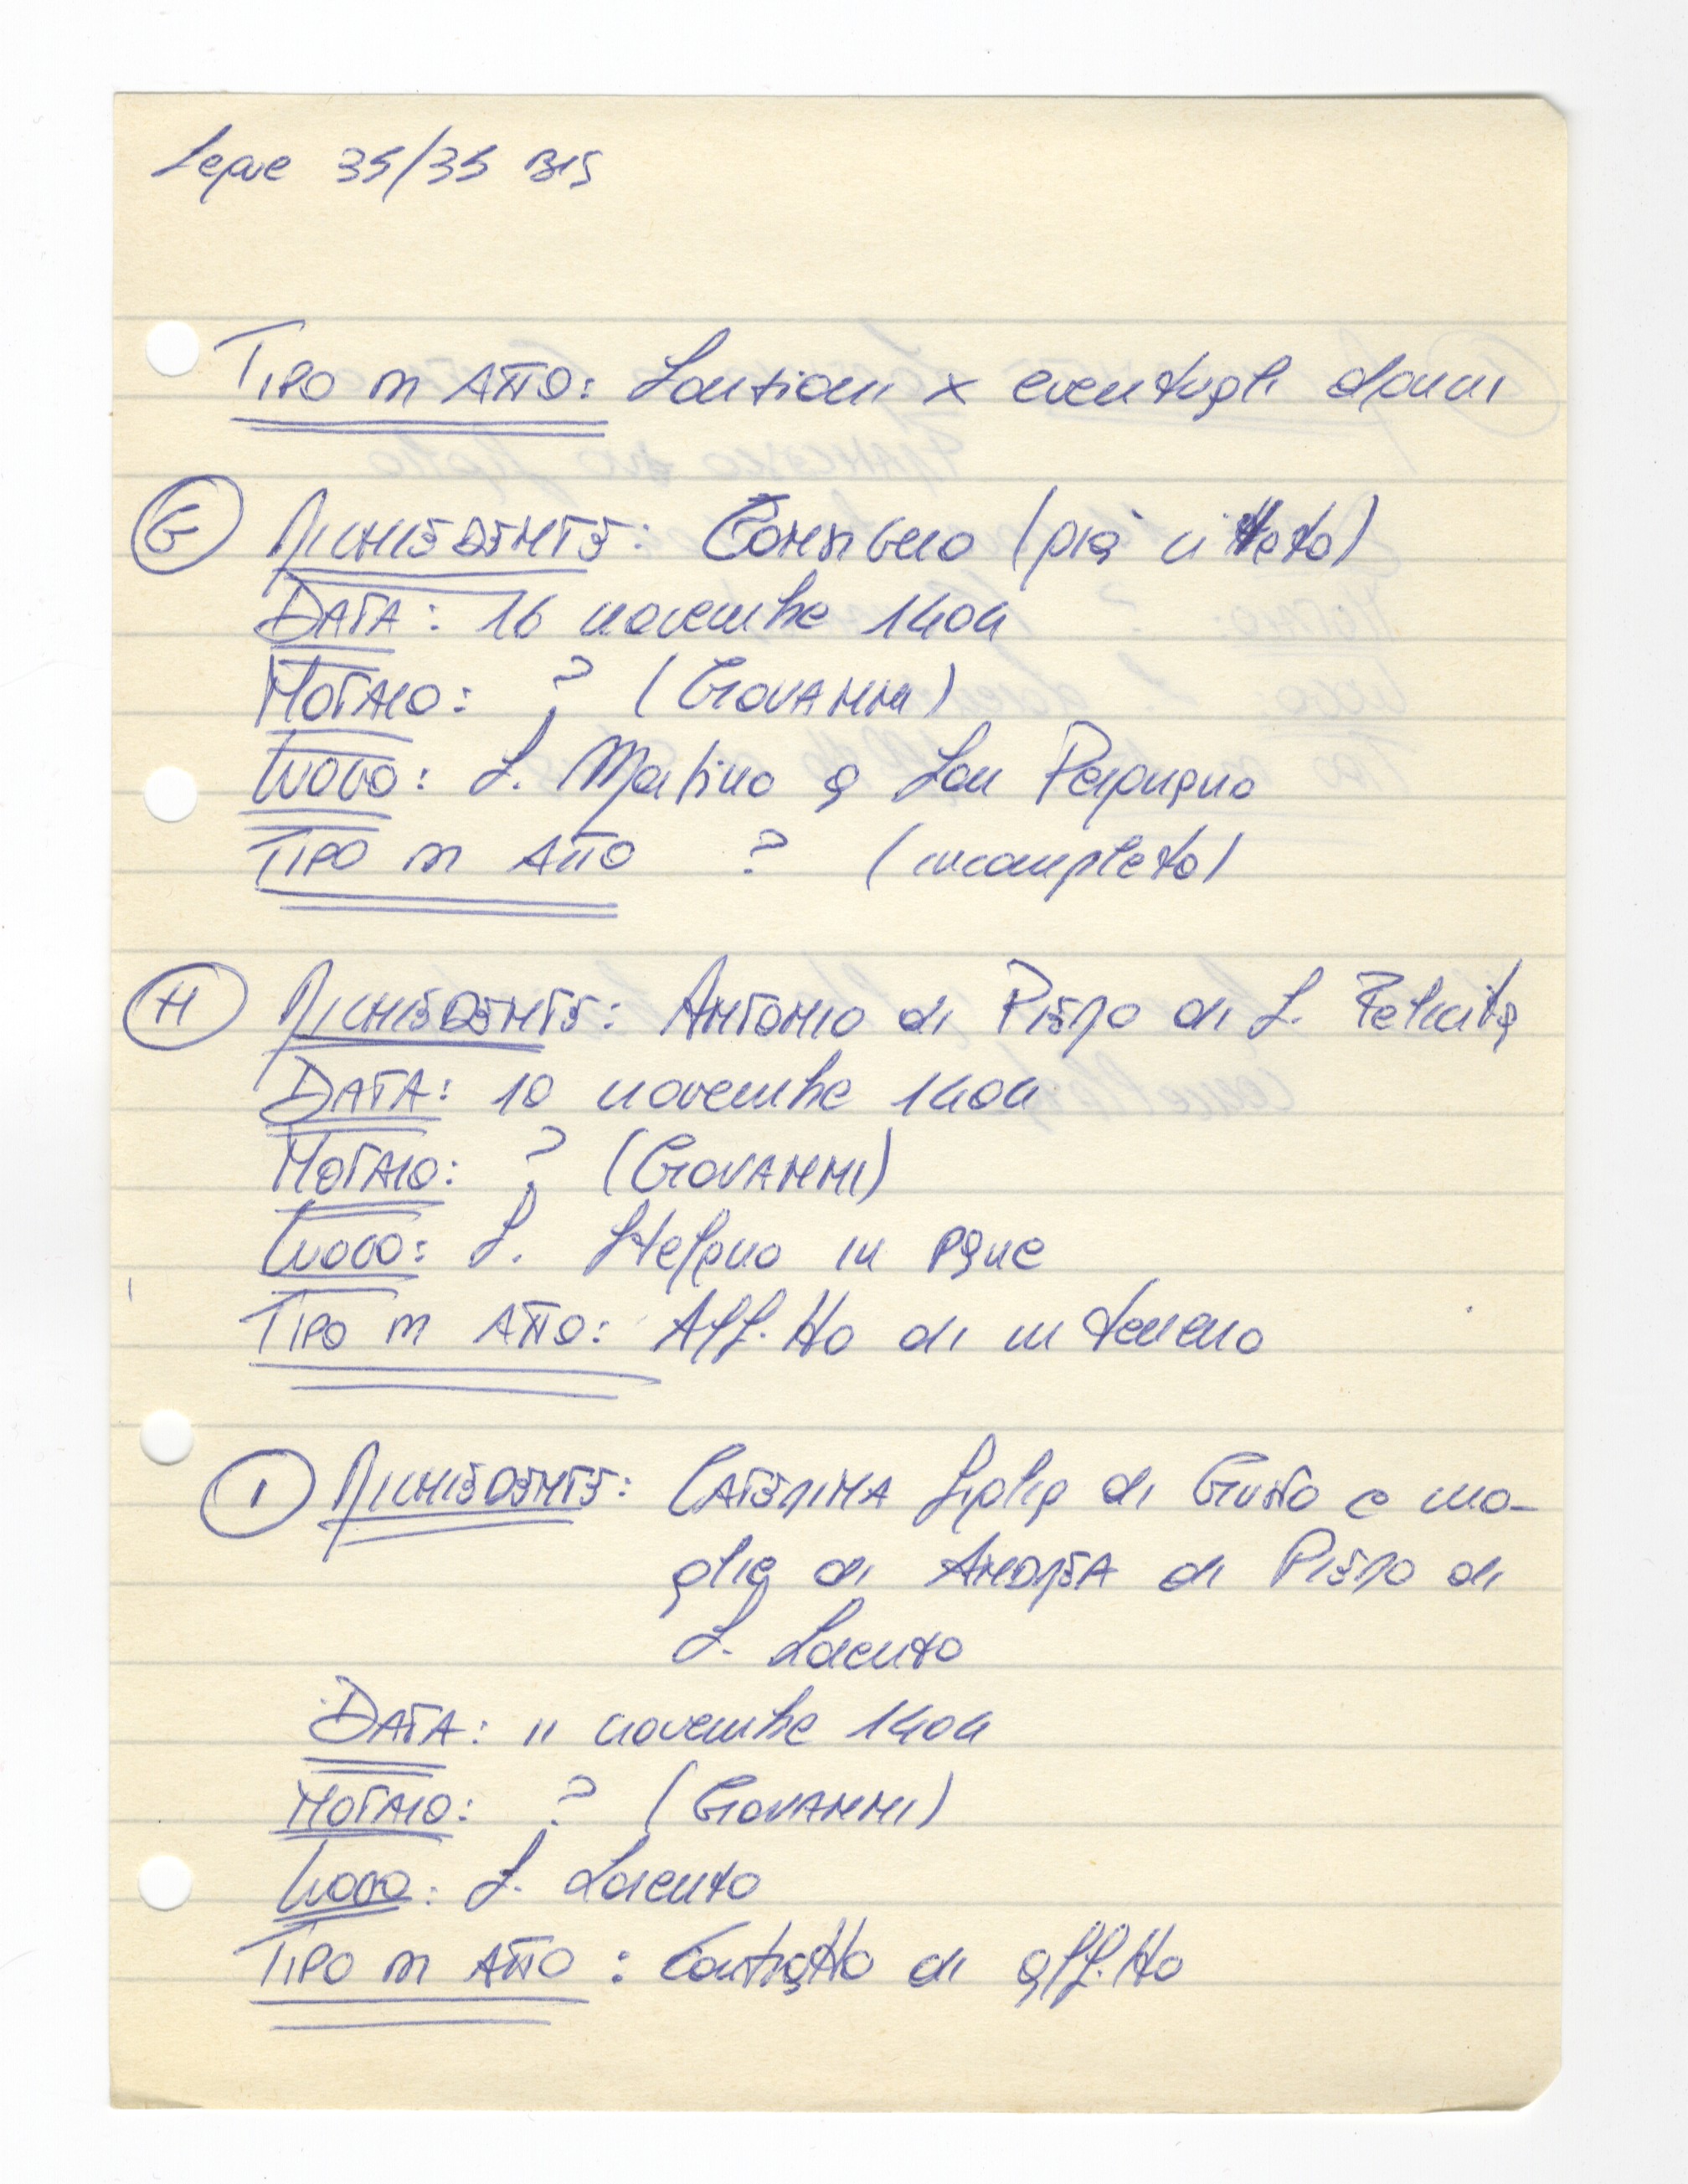 Segue 35/35 BIS
TIPO DI ATTO: Sanzioni x eventuali danni
G RICHIEDENTE: CONSIGLIO (già citato)
DATA: 16 novembre 1404
NOTAIO: ? (GIOVANNI)
LUOGO: S. Martino a San
TIPO DI ATTO ? (incompleto)
H RICHIEDENTE: ANTONIO di PIERO di S. Felicita
DATA: 10 novembre 1404
NOTAIO: ? (GIOVANNI)
LUOGO: S. Stefano in Pane
TIPO DI ATTO: Affitto di un terreno
I RICHIEDENTE: CATERINA figlia di Giusto e mo-
glie di ANDREA di PIERO di
S. Lorenzo
DATA: 11 novembre 1404
NOTAIO: ? (GIOVANNI)
LUOGO: S. Lorenzo
TIPO DI ATTO: Contratto di affitto